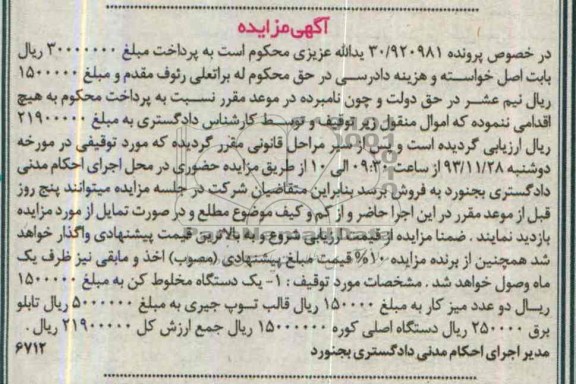 آگهی مزایده
در خصوص پرونده ۳۰/۹۲۰۹۸۱ یدالله عزیزی محکوم است به پرداخت مبلغ ۳۰۰۰۰۰۰۰ ریال
بابت اصل خواسته و هزینه دادرسی در حق محکوم له براتعلی رئوف مقدم و مبلغ ۱۵۰۰۰۰۰
ریال نیم عشر در حق دولت و چون نامبرده در موعد مقرر نسبت به پرداخت محکوم به هیچ
اقدامی ننموده که اموال منقول زیر توقیف و توسط کارشناس دادگستری به مبلغ ۲۱۹۰۰۰۰۰
ریال ارزیابی گردیده است و پس از سیر مراحل قانونی مقرر گردیده که مورد توقیفی در مورخه
دوشنبه ۹۳/۱۱/۲۸ از ساعت ۰۹:۳۰ الی ۱۰ از طریق مزایده حضوری در محل اجرای احکام مدنی
دادگستری بجنورد به فروش برسد بنابراین متقاضیان شرکت در جلسه مزایده میتوانند پنج روز
قبل از موعد مقرر در این اجرا حاضر و از کم و کیف موضوع مطلع و در صورت تمایل از مورد مزایده
بازدید نمایند . ضمنا مزایده از قیمت ارزیابی شروع و به بالاترین قیمت پیشنهادی واگذار خواهد
شد همچنین از برنده مزایده ۱۰% قیمت مبلغ پیشنهادی (مصوب) اخذ و مابقی نیز ظرف یک
ماه وصول خواهد شد . مشخصات مورد توقیف : ۱- یک دستگاه مخلوط کن به مبلغ ۱۵۰۰۰۰۰
ریال دو عدد میز کار به مبلغ ۱۵۰۰۰۰ ریال قالب توپ جیری به مبلغ ۵۰۰۰۰۰۰ ریال تابلو
برق ۲۵۰۰۰۰ ریال دستگاه اصلی کوره ۱۵۰۰۰۰۰۰ ریال جمع ارزش کل ۲۱۹۰۰۰۰۰ ریال .
مدیر اجرای احکام مدنی دادگستری بجنورد
۶۷۱۲